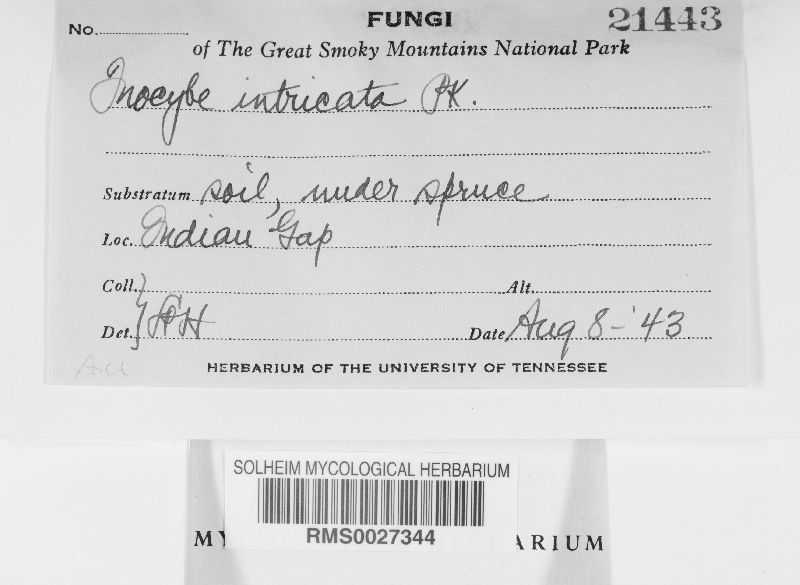 No. FUNGI 21443
of The Great Smoky Mountains National Park
Inocybe intricata PK.
Substratum soil, under spruce
Loc. Indian Gap
Coll. Alt.
Det. Date Aug 8-'43
HERBARIUM OF THE UNIVERSITY OF TENNESSEE
SOLHEIM MYCOLOGICAL HERBARIUM
RMS0027344
MY ARIUM